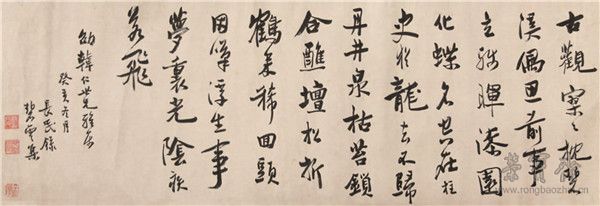 古觀寥々枕碧
溪偶思前事
立殘暉漆園
化蝶名空在柱
史猶龍去不歸
丹井泉枯苔鎖
合醮壇松折
鶴來稀回頭
因嘆浮生事
夢裏光陰疾
若飛
仁世兄雅屬
癸亥冬月
長民錄
碧雲集
榮寶齋
www.rongbaozhai.cn